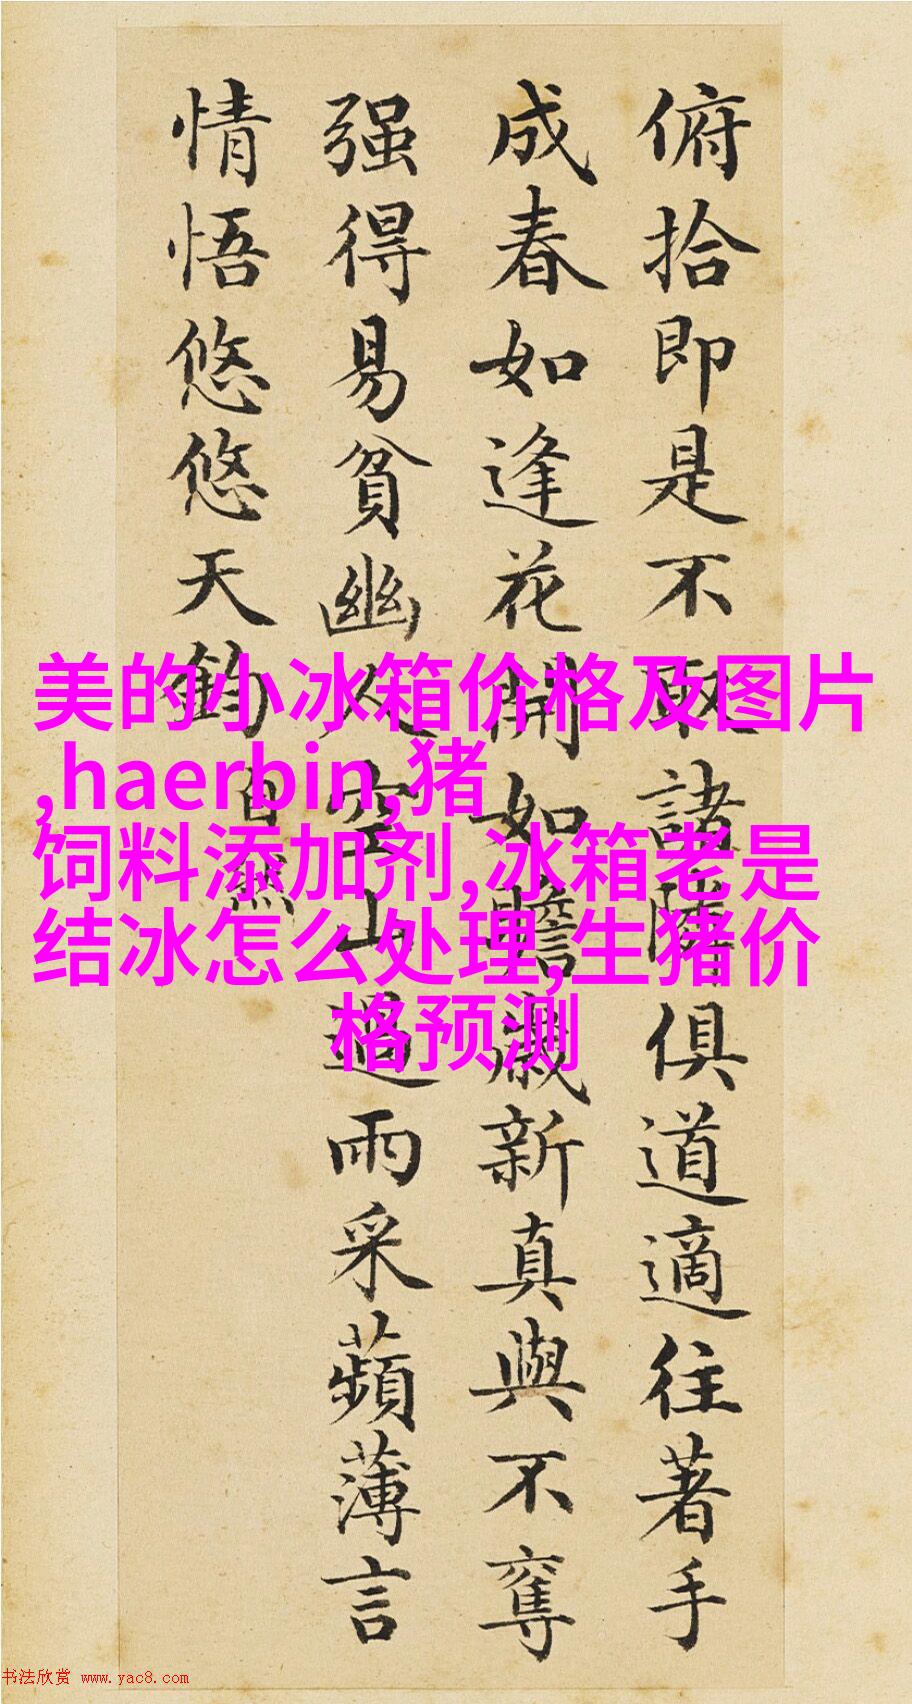 俯拾即是不取諸隣俱道適往著手
成春如逢花開如瞻歲新真與不奪
强得易貧幽人空山過雨采蘋薄言
情悟悠悠天鈞
自然
美的小冰箱价格及图片
,haerbin,猪
饲料添加剂,冰箱老是
结冰怎么处理,生猪价
格预测
书法欣赏 www.yac8.com